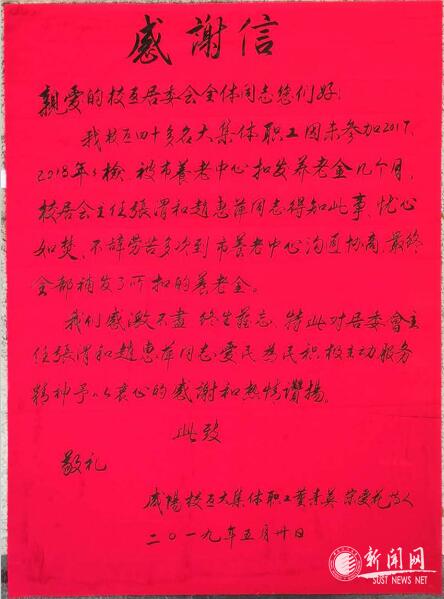 感謝信
親爱的校区居委会全体同志您们好:
我校区四十多名大集体职工因未参加2017、
2018年年檢,被市養老中心扣发养老金几个月,
校居会主任張渭和趙惠萍同志得知此事、忧心
如焚、不辞劳苦多次到市養老中心沟通协商,最終
全部補发了所扣的養老金。
我们感激不盡 終生難忘、特此对居委會主
任張渭和趙惠萍同志爱民、為民积极主动服务
精神予以衷心的感謝和热情讚揚。
此致
敬礼
咸陽校区大集体职工董素英 宗爱花等人
二〇一九年五月廿日
新闻网
SUST NEWS NET